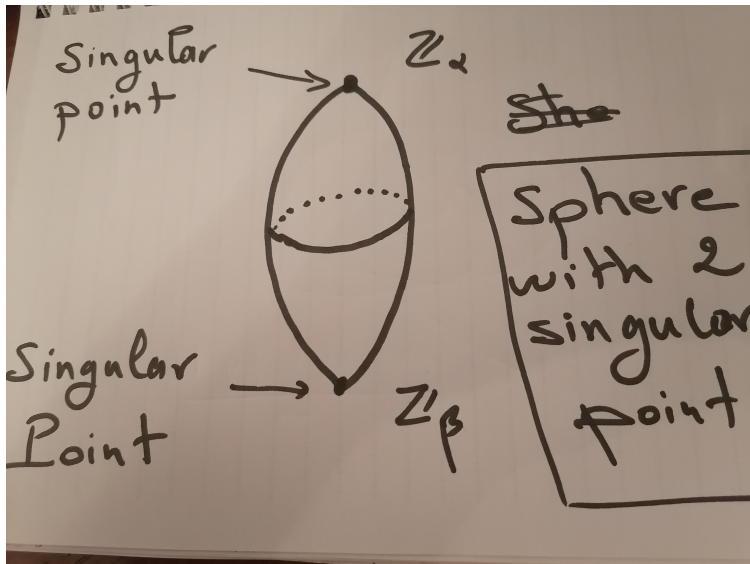 Singular
point
ℤα
She
Sphere
with 2
singular
point
Singular
Point
ℤβ